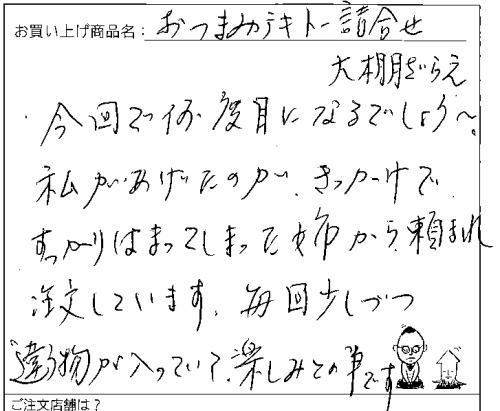 お買い上げ商品名：おつまみテキトー詰合せ
大棚ざらえ
今回で何度目になるでしょう〜。
私があげたのが、きっかけで
すっかりはまってしまった姉から頼まれ
注文しています。毎回少しづつ
違う物が入っていて、楽しみとの事です
ご注文店舗は？